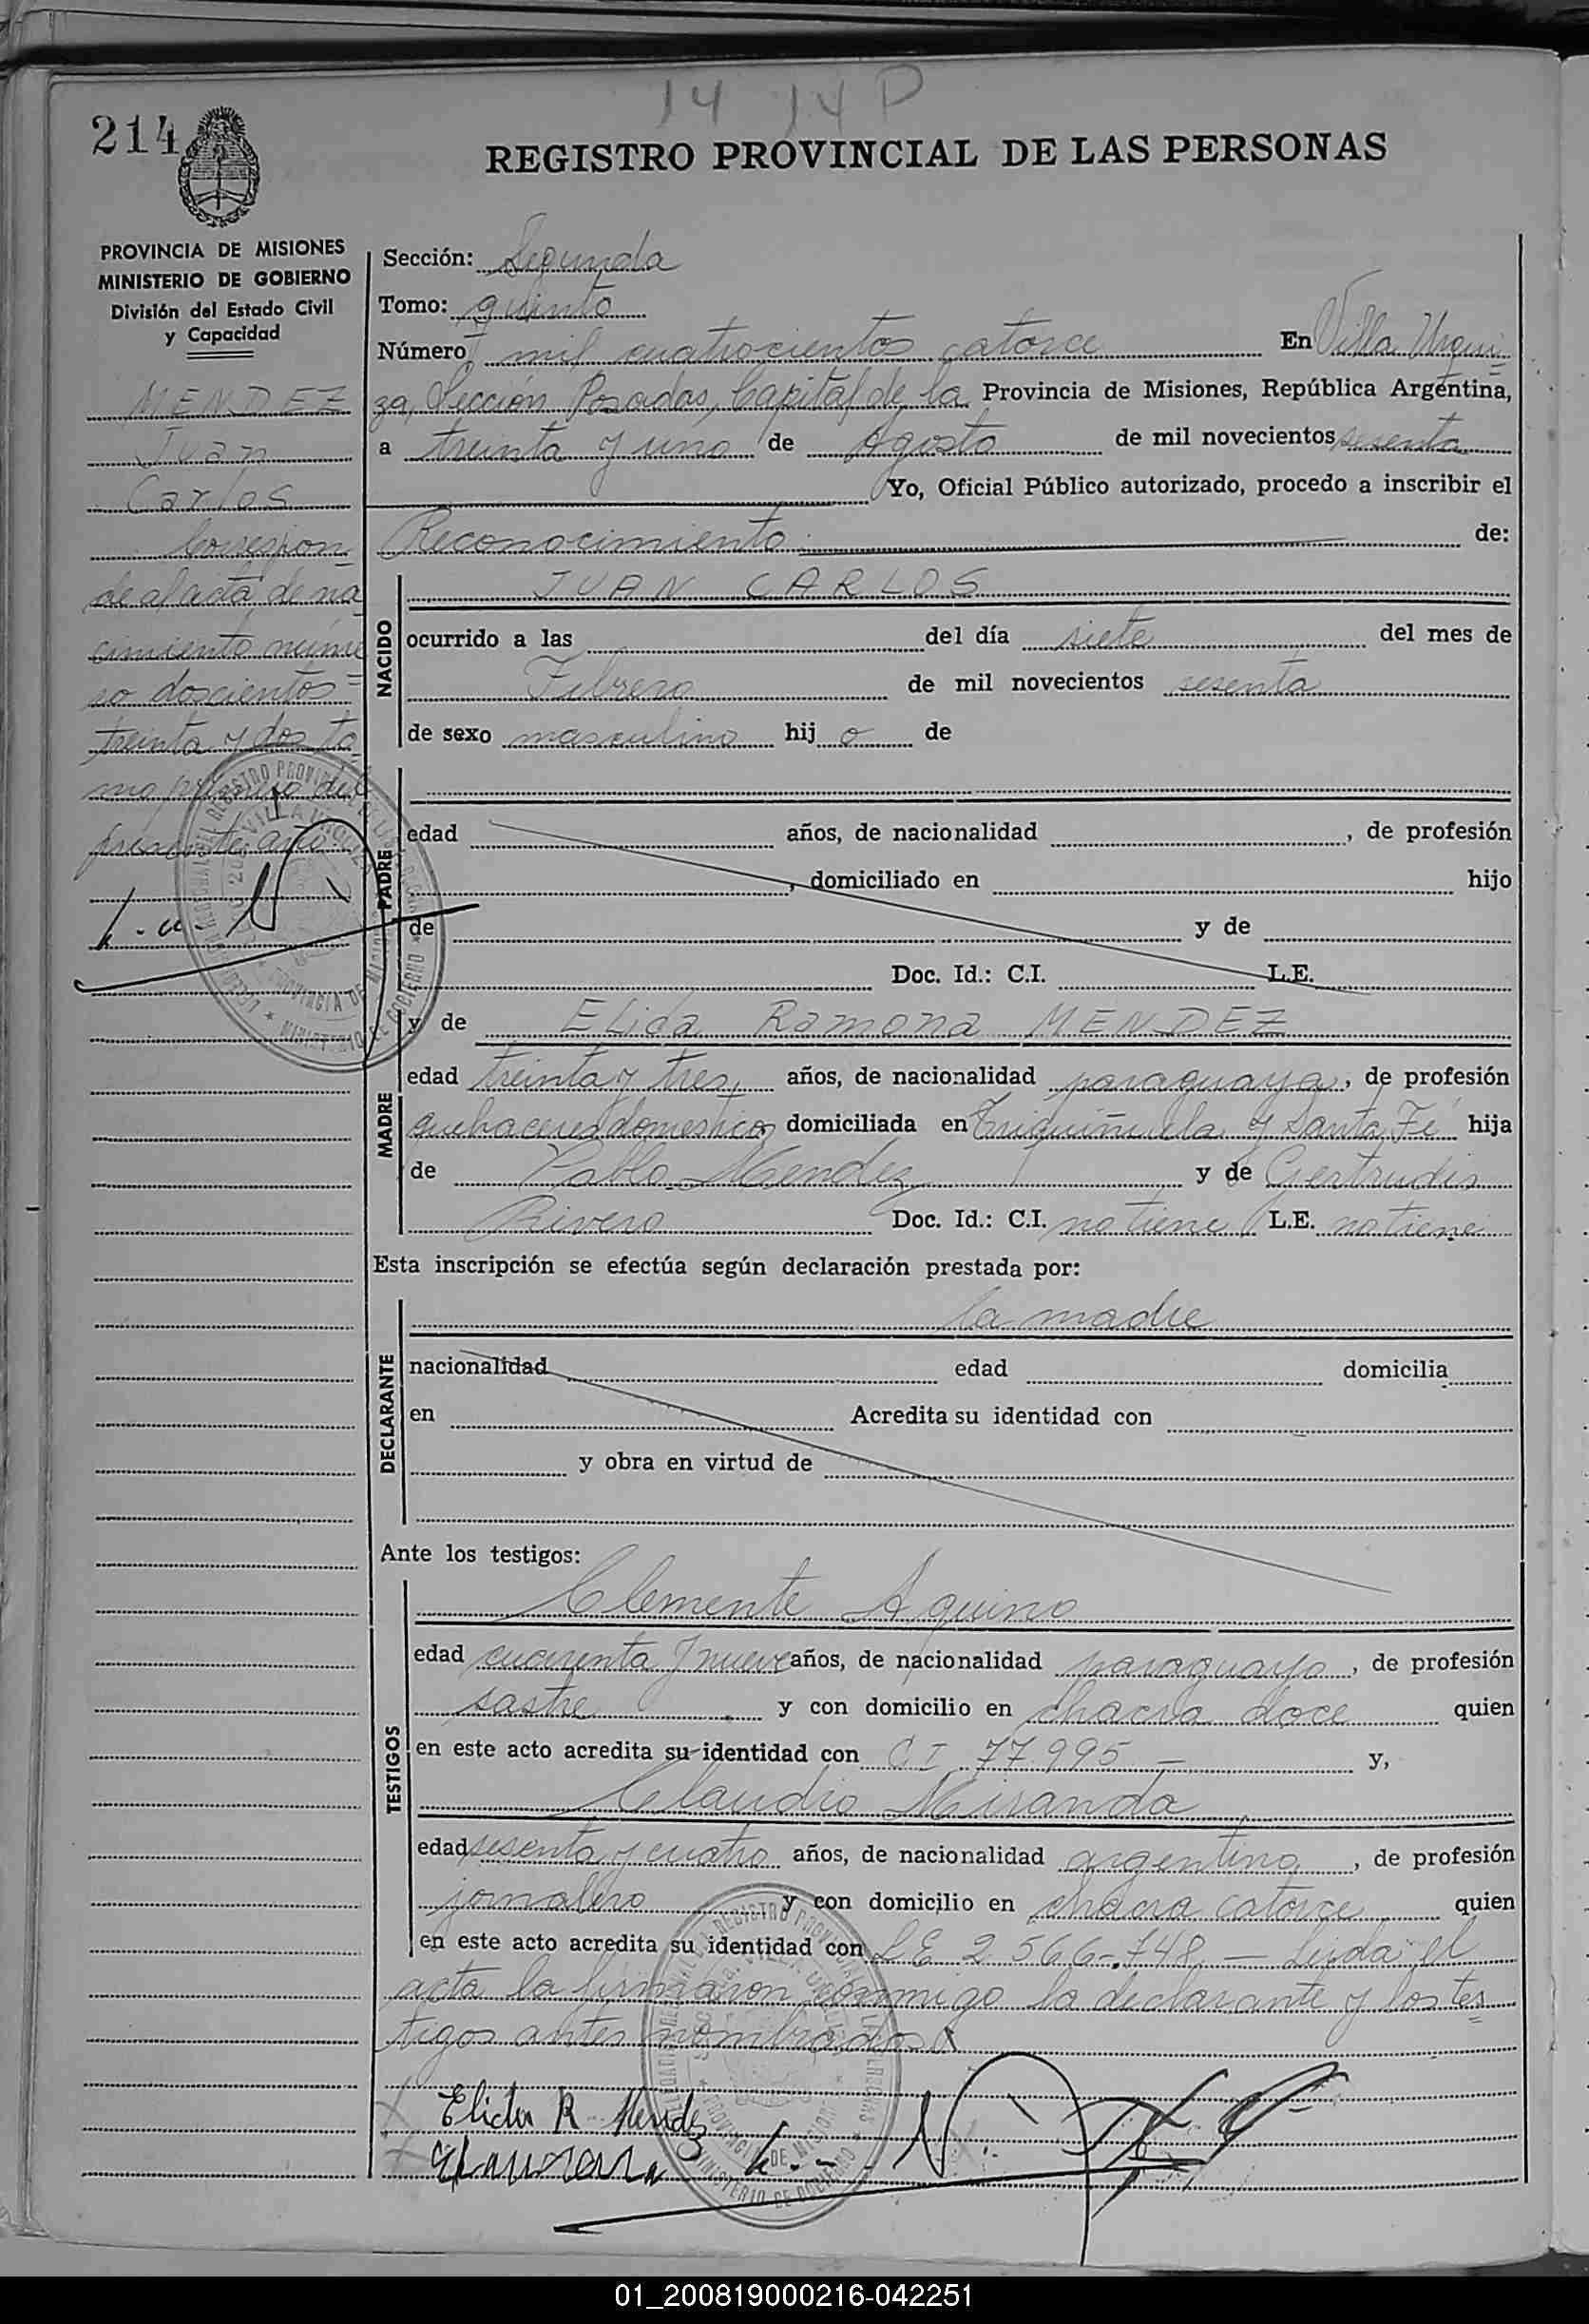 14 14 P
214
REGISTRO PROVINCIAL DE LAS PERSONAS
PROVINCIA DE MISIONES
MINISTERIO DE GOBIERNO
División del Estado Civil
y Capacidad
MENDEZ
Juan
Carlos
Correspon
de al acta de na
cimiento núme
ro doscientos
treinta y dos to
mo primero del
presente año.
Sección: Segunda
Tomo: quinto
Número mil cuatrocientos catorce En Villa Urqui
za, Sección Posadas, Capital de la Provincia de Misiones, República Argentina,
a treinta y uno de Agosto de mil novecientos sesenta
Yo, Oficial Público autorizado, procedo a inscribir el
Reconocimiento de:
NACIDO
JUAN CARLOS
ocurrido a las del día siete del mes de
Febrero de mil novecientos sesenta
de sexo masculino hij o de
PADRE
edad años, de nacionalidad , de profesión
, domiciliado en hijo
de y de
Doc. Id.: C.I. L.E.
y de Elida Ramona MENDEZ
MADRE
edad treinta y tres años, de nacionalidad paraguaya, de profesión
quehaceres domesticos domiciliada en Trigüiñuela y Santa Fé hija
de Pablo Mendez y de Gertrudis
Rivero Doc. Id.: C.I. no tiene L.E. no tiene
Esta inscripción se efectúa según declaración prestada por:
DECLARANTE
la madre
nacionalidad edad domicilia
en Acredita su identidad con
y obra en virtud de
Ante los testigos:
TESTIGOS
Clemente Aquino
edad cuarenta y nueve años, de nacionalidad paraguayo, de profesión
sastre y con domicilio en chacra doce quien
en este acto acredita su identidad con C I 77.995 — y,
Claudio Miranda
edad sesenta y cuatro años, de nacionalidad argentino, de profesión
jornalero y con domicilio en chacra catorce quien
en este acto acredita su identidad con L E 2.566.748 — Leida el
acta la firmaron conmigo la declarante y los tes
tigos antes nombrados
Elida R Mendez
01_200819000216-042251